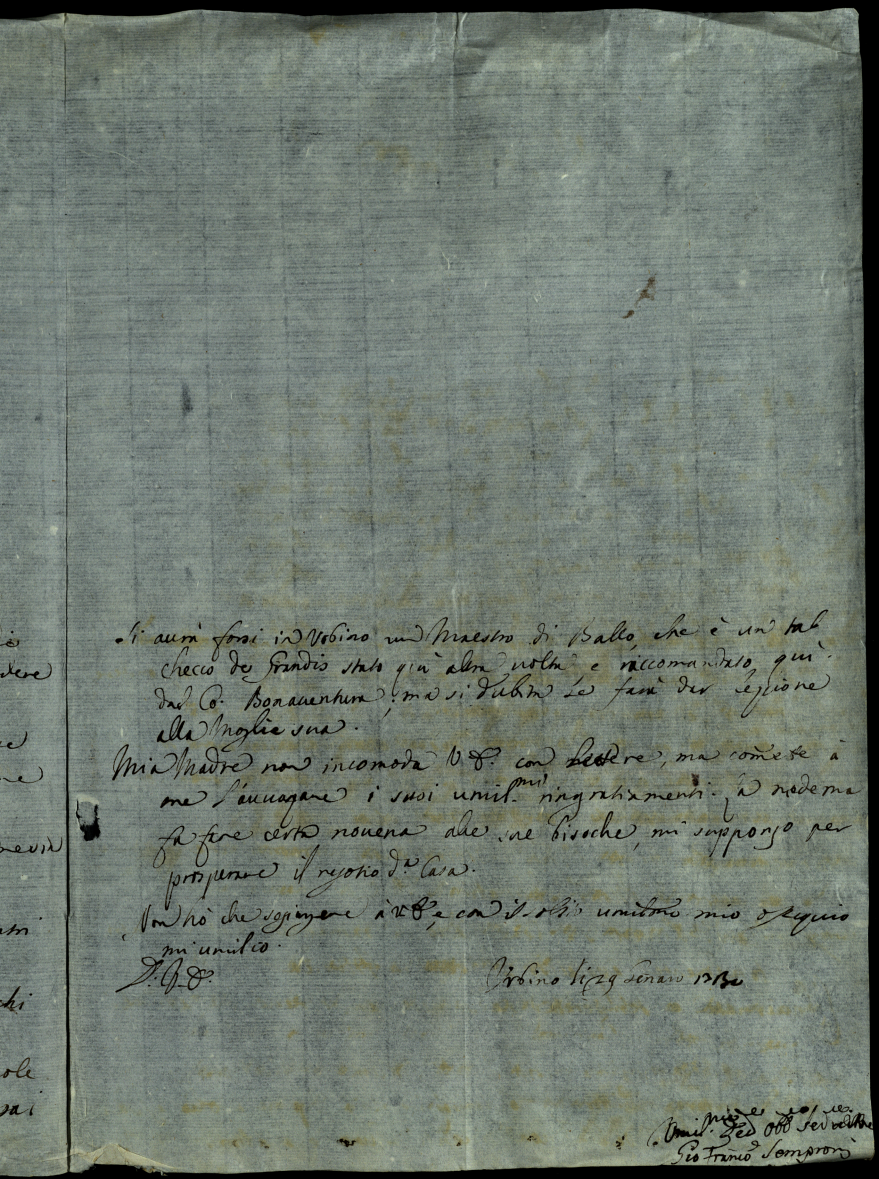 Si aurà forsi in Urbino un Maestro di Ballo, che è un tal
checco de Grandis stato quì altra volta e raccomandato quì
dal Co. Bonaventura, ma si dubita se farà dar lezione
alla Moglie sua.
Mia Madre non incomoda V.S. con , ma comete à
me l'avvagare i suoi umil.mi ringratiamenti. la modema
fà fare certa novena alle sue Pisoche, mi suppongo per
prosperare il negotio d.a Casa.
Non hò che sogiungere à V.S. e con il solito umilissimo mio ossequio
mi umilio.
D. V.S.
Urbino li 29 Genaro
Umil.mo Dev. Obb. Servitore
Gio Franco Semproni
dere
ne
nevia
stri
chi
ole
sai